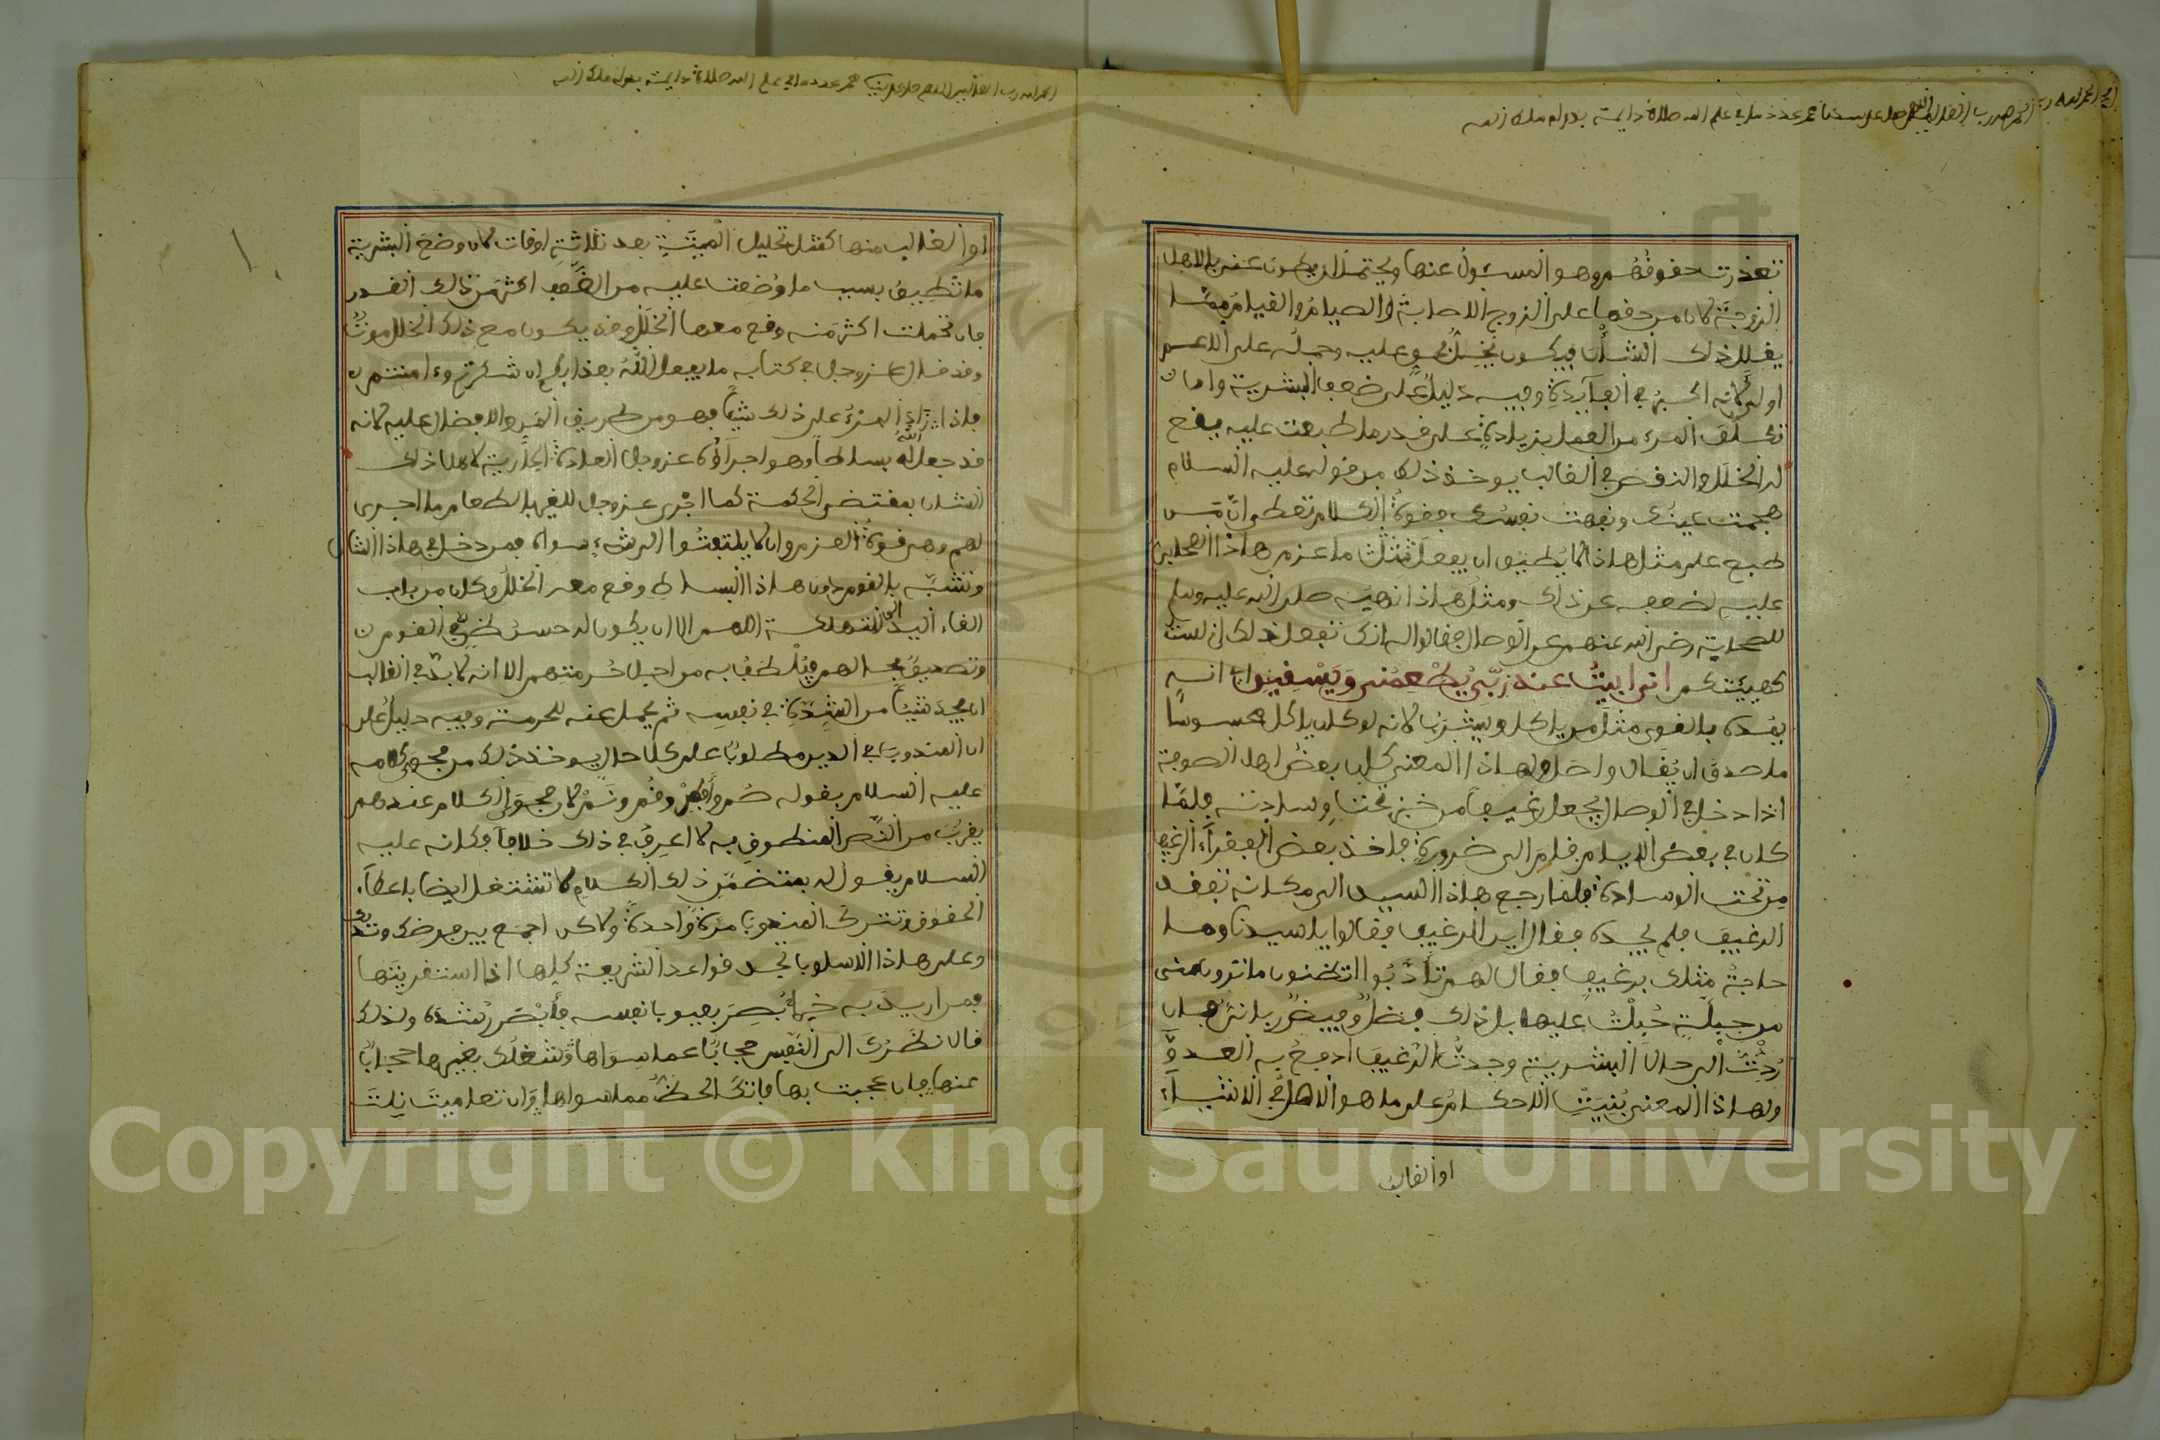 الحمد لله رب العالمين اللهم صل على سيدنا محمد عدد ما في علم الله صلاة دايمة بدوام ملك الله
تعذرت حقوقهم وهو المسئول عنها ويحتمل ان يكون عنى بالاهل
الزوجة لان من حقها على الزوج الاصابة والصيام والقيام مما
يقلل ذلك الشأن فيكون نحيل هو عليه وحمله على الاعم
اولى لانه اكبر في الفايدة وفيه دليل على ضعف البشرية وان
تكلف المرء من العمل زيادة على قدر ما طبعت عليه يقع
له الخلل والنقص في الغالب يوخذ ذلك من قوله عليه السلام
هجمت عينك ونفهت نفسك فقوة الكلام تعطي ان من
طبع على مثل هاذا لا يطيق ان يفعل مثل ما عزم هاذا الصحابي
عليه لضعفه عن ذلك ومثل هاذا نهيه صلى الله عليه وسلم
للصحابة رضي الله عنهم عن الوصال فقالوا له انك تفعل ذلك قال لست
كهيئتكم اني ابيت عند ربي يطعمني ويسقيني اي انه
يمده بالقوى مثل من ياكل ويشرب لانه لو كان ياكل محسوسا
ما صدق ان يقال واصل ولهاذا المعنى كان بعض اهل الصوفية
اذا دخل في الوصال يجعل رغيفا من خبز تحت وسادته فلما
كان في بعض الايام قام الى ضرورة فاخذ بعض الفقراء الرغيف
من تحت الوسادة فلما رجع هاذا السيد الى مكانه تفقد
الرغيف فلم يجده فقال اين الرغيف فقالوا يا سيدنا وما
حاجة مثلك برغيف فقال لهم تأدبوا اتظنون ما ترون مني
من جبلة جبلت عليها بل ذلك فضل وفيض رباني فان
رددت الى حال البشرية وجدت الرغيف ادفع به العدو
ولهاذا المعنى بنيت الاحكام على ما هو الاصل في الاشياء
او الغالب
الحمد لله رب العالمين اللهم صل على سيدنا محمد عدد ما في علم الله صلاة دايمة بدوام ملك الله
او الغالب منها كمثل تحليل الميتة بعد ثلاثة اوقات لان وضع البشرية
ما تطيق بسبب ما وضعت عليه من الضعف اكثر من ذلك القدر
فان تحملت اكثر منه وقع معها الخلل وقد يكون مع ذلك الخلل موت
وقد قال عز وجل في كتابه ما يفعل الله بعذابكم ان شكرتم وءامنتم
فاذا زاد المرء على ذلك شيئا فهو من طريق المن والافضال عليه لانه
قد جعل الله له بساطا وهو اجراؤه عز وجل العادة الجارية لاهل ذلك
الشان بمقتضى الحكمة كما اجرى عز وجل للغير بالطعام ما اجرى
لهم وهي قوة العزم وان لا يلتفتوا الى شيء سواه فمن دخل في هاذا الشان
وتشبه بالقوم دون هاذا البساط وقع معه الخلل وكان من باب
القاء اليد الى التهلكة اللهم الا ان يكون له حسن ظن في القوم
وتصديق بحالهم فيلطف به من اجل حرمتهم الا انه لا بد في الغالب
ان يجد شيئا من الشدة في نفسه ثم يحمل عنه للحرمة وفيه دليل على
ان المندوب في الدين مطلوب على كل حال يوخذ ذلك من فحوى كلامه
عليه السلام بقوله صم وأفطر وقم ونم لان فحوى الكلام عندهم
يقرب من النص المنطوق به لا اعرف في ذلك خلافا فكانه عليه
السلام يقول له بمتضمن ذلك الكلام لا تشتغل ايضا باعطاء
الحقوق وتترك المندوب مرة واحدة ولاكن اجمع بين فرضك وندبك
وعلى هاذا الاسلوب تجد قواعد الشريعة كلها اذا استقريتها
فمن اريد به خير بصر بعيوب نفسه فأبصر رشده ولذلك
قال نظرك الى النفس حجاب عما سواها وشغلك بغيرها حجاب
عنها فان عجبت بها فاتك الحظ مما سواها وان تعاميت نلت
Copyright © King Saud University